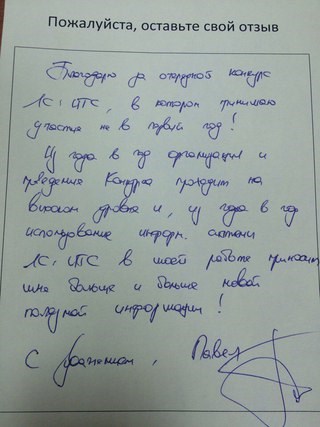 Пожалуйста, оставьте свой отзыв
Благодарю за открытой конкурс
1С: ИТС, в котором принимаю
участие не в первый год!
Из года в год организация и
проведение Конкурса проходит на
высоком уровне и, из года в год
использование информ. системы
1С: ИТС в моей работе приносит
мне больше и больше новой
полезной информации!
С уважением, Павел